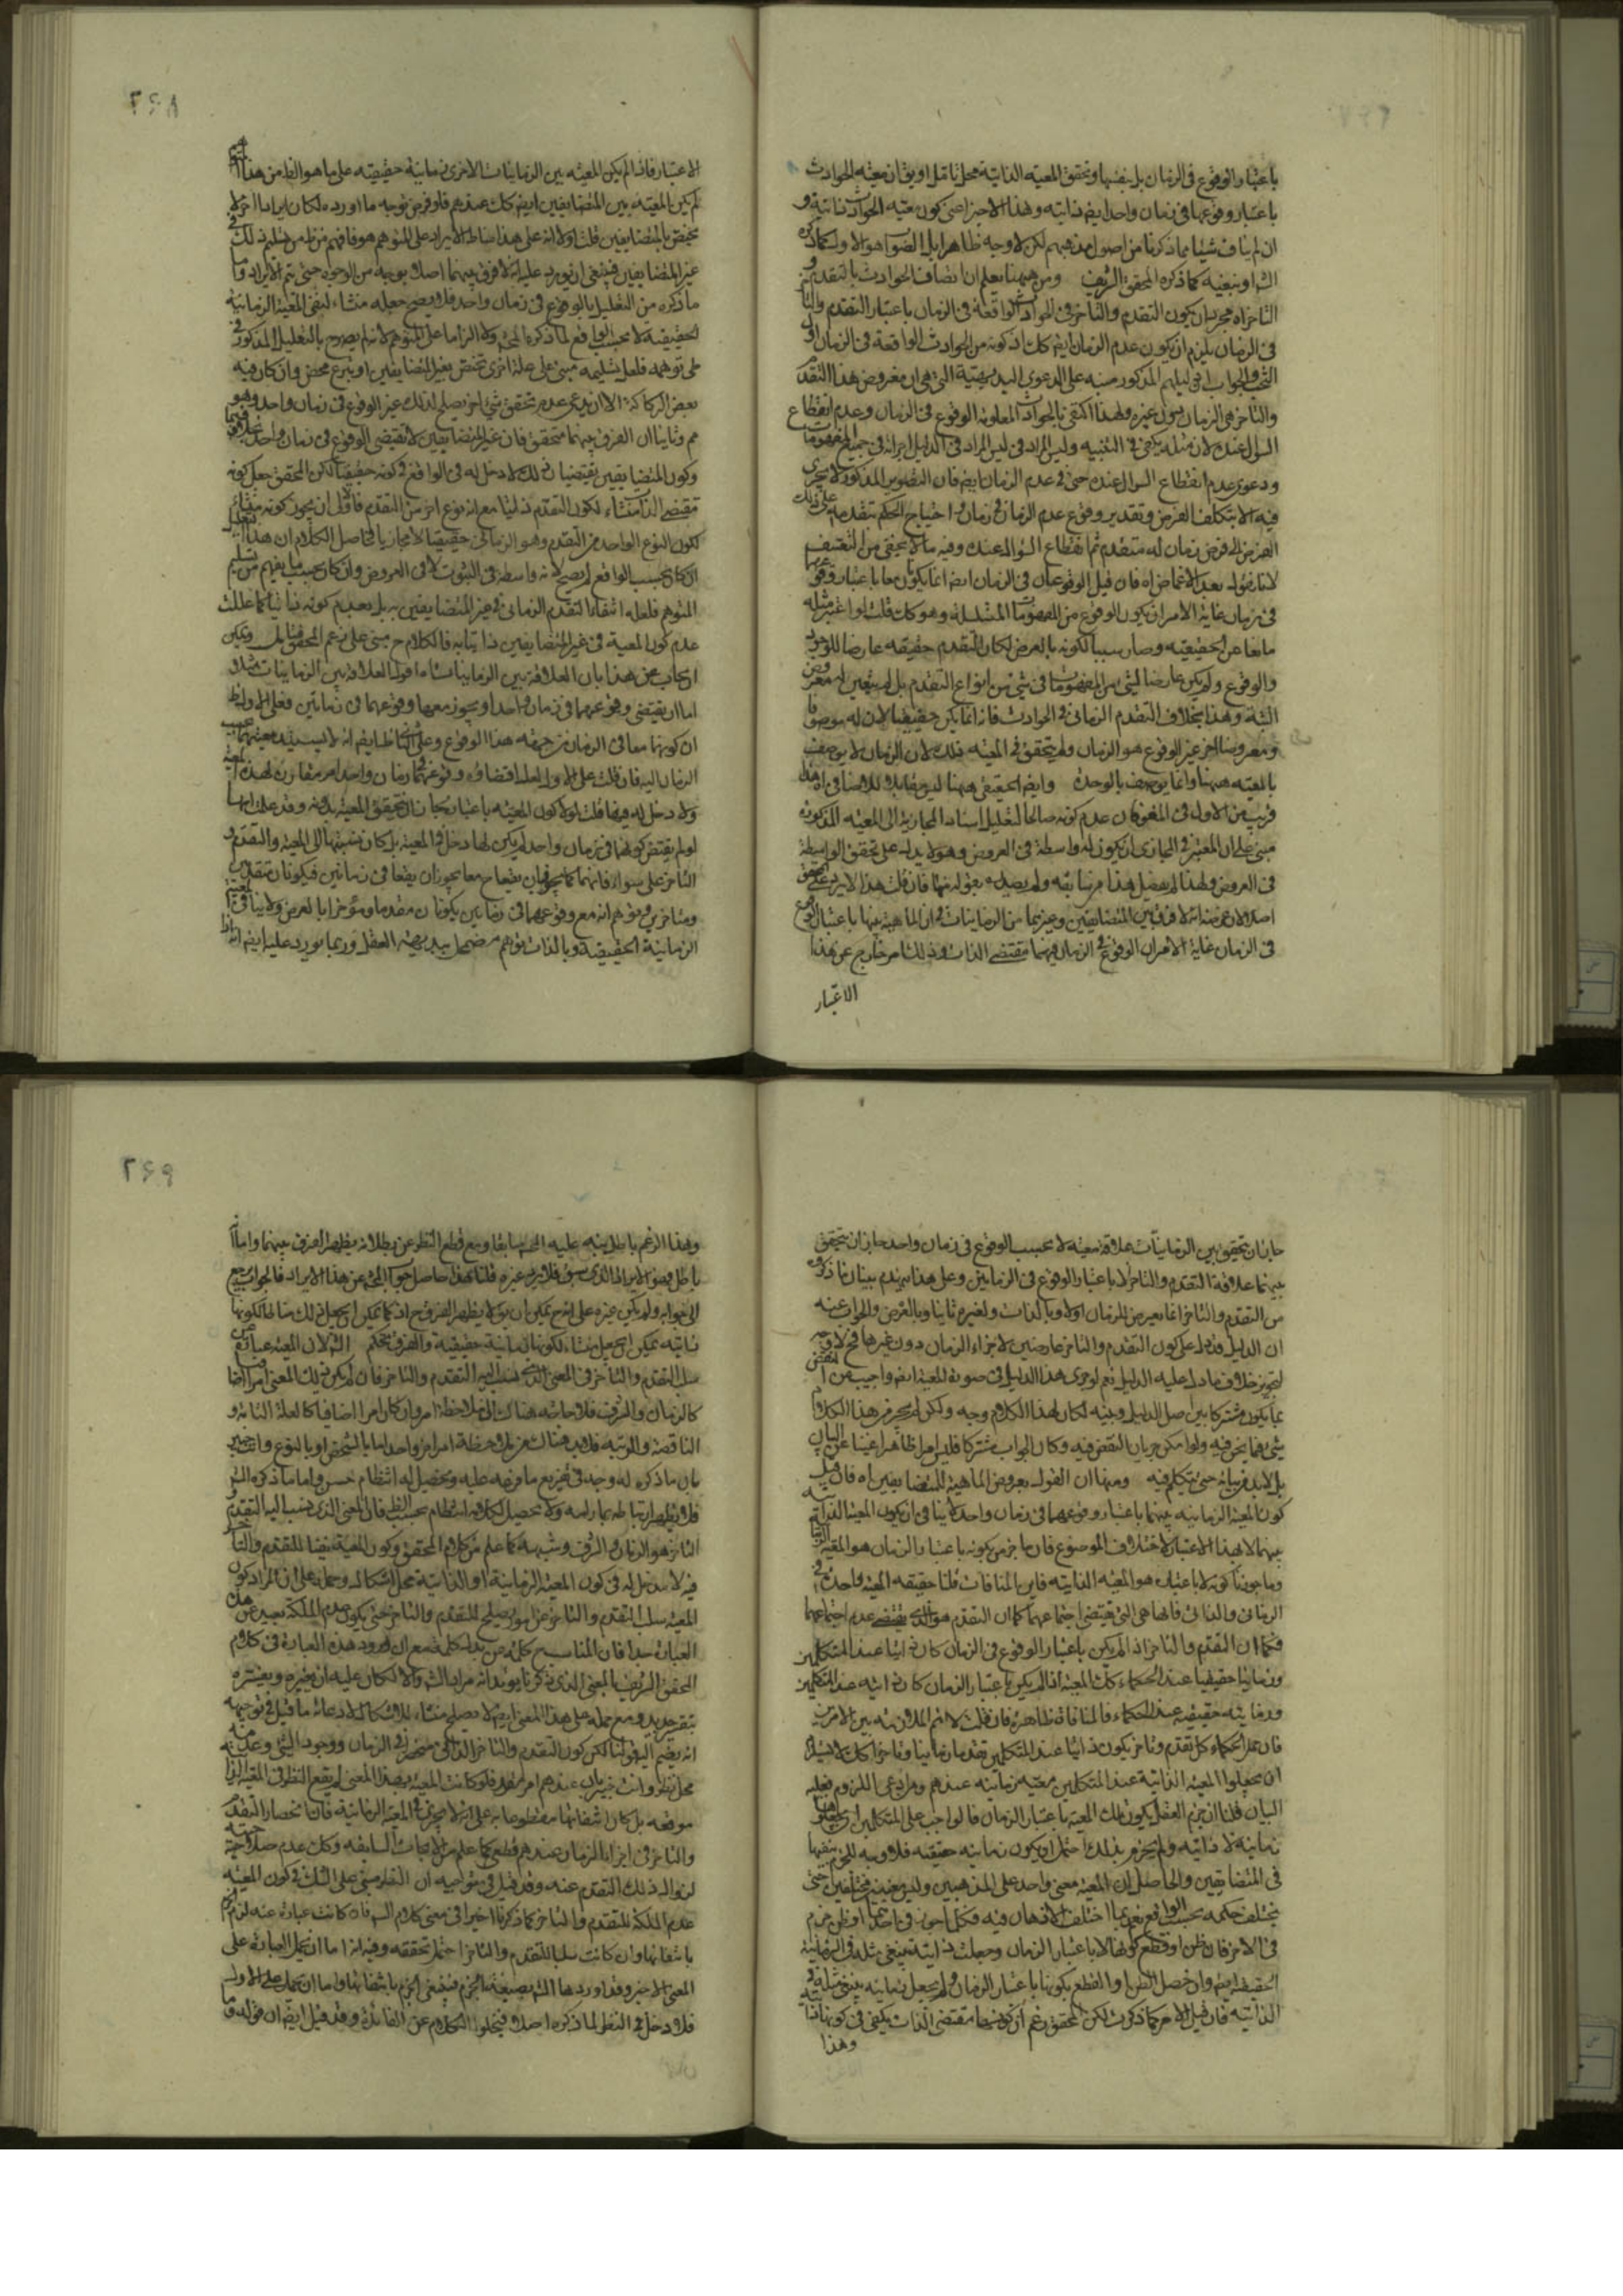 باعتبار الوقوع فى الزمان بل بنفسها وتحقق المعية الذاتية محل تأمل او يق ان معية الحوادث
باعتبار وقوعها فى زمان واحد ايضا ذاتيه وهذا الاخير اعنى كون معية الحوادث ذاتية و
ان لم يناف شيئا مما ذكرنا من اصول مذهبهم لكن لا وجه ظاهرا بل الصواب هو الاول كما ذكره
كما ذكره المحقق الشريف ومن ههنا يعلم ان اتصاف الحوادث بالتقدم و
التاخر اه يكون التقدم والتاخر فى الحوادث الواقعة فى الزمان باعتبار التقدم والتا
فى الزمان يلزم ان يكون عدم الزمان ايضا كك اذ كونه من الحوادث الواقعة فى الزمان اول
المذكور منبه على الدعوى البديهية التى هى ان معروض هذا التقدم
والتاخر هى الزمان دون غيره ولهذا اكتفى بالحوادث المعلومة الوقوع فى الزمان وعدم انقطاع
السؤال عنده لان مثله يكفى فى التنبيه وليس المراد فى الدليل اجرائه فى جميع المفهومات
ودعوى عدم انقطاع السؤال عنده حتى فى عدم الزمان ايضا فان التصوير المذكور لا يجرى
فيه الا بتكلف الفرض وتقدير وقوع عدم الزمان فى زمان و احتياج الحكم بتقدمه على ذلك
الفرض الى فرض زمان له متقدم ثم انقطاع السؤال عنده وفيه ما لا يخفى من التعسف
فى زمان غاية الامر ان يكون الوقوع من المفهومات وهو كك قلت لو اعتبر مثله
مانعا عن الحقيقية وصار سببا لكونه بالعرض لكان التقدم حقيقة عارضا للوجود
والوقوع ولم يكن عارضا لشئ من المفهومات فى شئ من انواع التقدم بل لم يتعين له معروض
البتة وهذا بخلاف التقدم الزمانى فى الحوادث فانه انما يكن حقيقيا لان له موصوفا
ومعروضا اخر غير الوقوع هو الزمان ولم يتحقق فى المعية فلك لان الزمان لا يوصف
بالمعية ههنا وانما يوصف بالوحدة وايضا الحقيقى ههنا ليس مقابلا للاضافى اه هذا
قريب من الاول فى المغز فان عدم كونه صالحا لتعليل اسناد المجازية الى المعية المذكورة
مبنى على ان المعتبر فى المجازى ان يكون له واسطة فى العروض وهو لا يدل على تحقق الواسطة
فى العروض ولهذا لم يفصل هذا من سابقه ولم يصدره بقوله منها فان قلت هذا لا يرد على المحقق
اصلا لان غرضه انه لا فرق بين المتضايفين وغيرهما من الزمانيات فى ان الماهية بينها باعتبار الوقوع
فى الزمان غاية الامر ان الوقوع فى الزمان فيهما مقتضى الذات وذلك امر خارج عن هذا
الاعتبار
٢٦٨
الاعتبار فاذا لم يكن المعية بين الزمانيات الاخرى زمانية حقيقية على ما هو الظ من هذا
لم يكن المعية بين المتضايفين ايضا كك عندهم فلو فرض توجه ما اورده لكان ايرادا اخر لا
يختص بالمتضايفين قلت اولا انه على هذا مناط الايراد على المتوهم هو فافهم من تسليم ذلك
غير المتضايفين فينبغى ان يورد عليه انه لا فرق بينهما اصلا بوجه من الوجوه حتى يتم الايراد وما
ما ذكره من التعليل بالوقوع فى زمان واحد فلا يصح جعله منشاء لنفى المعية الزمانية
الحقيقية لا بحسب الواقع لما ذكره المحشى ولا الزاما على المتوهم لانه لم يصرح بالتعليل المذكور
توهمه فلعل تسليمه مبنى على علة اخرى تختص بغير المتضايفين او تبرع محض وان كان فيه
بعض الركاكة الا ان يدعى عدم تحقق شئ اخر يصلح لذلك غير الوقوع فى زمان واحد وهو
مم وثانيا ان الفرق بينهما متحقق فان غير المتضايفين لا يقتضى الوقوع فى زمان واحد بخلاف
وكون المتضايفين يقتضيان ذلك لا دخل له فى الواقع فى كونه حقيقيا لكن المحقق جعل كونه
مقتضى الذات منشاء لكون التقدم ذاتيا مع انه نوع اخر من التقدم فاولى ان يجوز كونه منشاء
لكون النوع الواحد من التقدم وهو الزمانى حقيقيا لا مجازيا فحاصل الكلام ان هذا
ان كان بحسب الواقع لم يصح لانه واسطة فى الثبوت لا فى العروض وان كان بحسب ما يفهم من تسليم
المتوهم فلعله التقدم الزمانى فى غير المتضايفين بعدم كونه ذاتيا كما علل
عدم كون المعية فى غير المتضايفين ذاتيا به فالكلام ح مبنى على زعم المحقق ويمكن
ان يجاب عن هذا بان العلاقة بين الزمانيات
اما ان يقتضى وقوعهما فى زمان واحد او يجوز معها وقوعهما فى زمانين فعلى الاول
ان كونهما معا فى الزمان من جهة هذا الوقوع وعلى الثانى ايضا انه لا يستند معيتهما
الزمان اليه فان قلت على الاول لعل اقتضاءه وقوعهما فى زمان واحد امر مقارن لهذه المعية
ولا دخل له فيها قلت لو لا كون المعية باعتباره يجاز ان يتحقق المعية بدونه وقد علمت انها
لو لم يقتض كونهما فى زمان واحد لم يكن لها دخل فى المعية بل كان نسبتها الى المعية والتقدم و
التاخر على سواء فانهما كما يجوز ان يقعا معا يجوز ان يقعا فى زمانين فيكونان متقدمين
ومتاخرين وتوهم انه مع وقوعهما فى زمانين يكونان مقدما ومؤخرا بالعرض ولا ينافى المعية
الزمانية الحقيقية وبالذات توهم مضمحل ببديهة العقل وربما يورد عليه ايضا انه اذا
جاز ان يتحقق بين الزمانيات علاقة معية لا بحسب الوقوع فى زمان واحد جاز ان يتحقق
بينهما علاقة التقدم والتاخر لا باعتبار الوقوع فى الزمانين وعلى هذا ينهدم بنيان ما ذكره
من التقدم والتاخر انما يعرض للزمان اولا وبالذات ولغيره ثانيا وبالعرض والجواب عنه
ان الدليل قد دل على كون التقدم والتاخر عارضين لاجزاء الزمان دون غيرها فح لا وجه
لتجويز خلاف ما دل عليه الدليل نعم لو جرى هذا الدليل فى صورة المعية ايضا واجيب عن النقض
بما يكون مشتركا بين اصل الدليل وبينه لكان لهذا الكلام وجه ولكن لم يجر من هذا الكلام
شئ فيما نحن فيه ولو امكن جريان النقض فيه وكان الجواب مشتركا فليس امرا ظاهرا غنيا عن البيان
بل لابد من بيانه حتى يتكلم فيه ومنها ان القول بعروض الماهية للمتضايفين اه فان قيل
كون المعية الزمانية بينهما باعتبار وقوعهما فى زمان واحد لا ينافى ان يكون المعية الذاتية
بينهما لا بهذا الاعتبار لاختلاف الموضوع فان ما جزم بكونه باعتبار الزمان هو المعية الزمانية
وما جوزنا كونه لا باعتباره هو المعية الذاتية فاين المنافات قلنا حقيقة المعية واحدة فى
الزمانى والذاتى فانها هى التى يقتضى اجتماعهما كما ان التقدم هو الذى يقتضى عدم اجتماعهما
فكما ان التقدم والتاخر اذا لم يكن باعتبار الوقوع فى الزمان كان ذاتيا عند المتكلمين
وزمانيا حقيقيا عند الحكماء كك المعية اذا لم يكن باعتبار الزمان كانت ذاتية عند المتكلمين
وزمانية حقيقية عند الحكماء فالمنافاة ظاهرة فان قلت لا نم الملازمة بين الامرين
فان عند الحكماء كل تقدم وتاخر يكون ذاتيا عند المتكلمين تقدما زمانيا وتاخرا كك لا يستلزم
ان يجعلوا المعية الذاتية عند المتكلمين معية زمانية عندهم ومن ادعى اللزوم فعليه
البيان قلنا ان جزم العقل بكون تلك المعية باعتبار الزمان فالواجب على المتكلمين ان يجعلوها
زمانية لا ذاتية ولم يجزم بذلك احتمل ان يكون زمانية حقيقية فلا وجه للجزم بنفيها
فى المتضايفين والحاصل ان المعية معنى واحد على المذهبين وليس معنيين مختلفين حتى
يختلف حكمه بحسب الواقع نعم ربما اختلف الاذهان فيه
فى الاخر فان ظن او قطع كونها لا باعتبار الزمان وجعلت ذاتية ينبغى مثله فى الزمانية
الحقيقية ايضا وان حصل الظن او القطع بكونها باعتبار الزمان ولم يجعل زمانية ينبغى مثله فى
الذاتية فان قيل الامر كما ذكرت لكن المحقق زعم ان كونهما مقتضى الذات يكفى فى كونها ذاتية
وهذا
٢٦٩
وهذا الزعم باطل ينبه عليه المحشى سابقا ومع قطع النظر عن بطلانه يظهر الفرق بينهما واما
باطل فهو الايراد الذى سبق فلا يرد غيره قلنا هذا حاصل جواب المحشى عن هذا الايراد فالجواب يرجع
الى جوابه ولم يكن غيره على انه ح يمكن ان يق لا يظهر الفرق ح اذ كما يمكن ان يجعل ذلك مناطا لكونها
ذاتية يمكن ان يجعل منشاء لكونها زمانية حقيقية والفرق تحكم لان المعية عبارة عن
سلب التقدم والتاخر فى المعنى الذى ينسب اليه التقدم والتاخر فان لم يكن ذلك المعنى امرا اضافيا
كالزمان والشرف فلا حاجة هناك الى ملاحظة امر وان كان امرا اضافيا كالعلة التامة و
الناقصة والرتبة فلا بد هناك من ملاحظة امر اخر واحد اما بالشخص او بالنوع وانت خبير
بان ما ذكره له وجه فى تفريع ما فرعه عليه وتحصيل له انتظام حسن واما ما ذكره
فلا يظهر ارتباطه بما رامه ولا يحصل لكلامه انتظام بحسب الظ فان المعنى الذى ينسب اليه التقدم
التاخر هو الزمان والشرف وشبهه كما علم من كلام المحقق وكون المعية نفيا للتقدم والتاخر
فيه لا مدخل له فى كون المعية الزمانية او الذاتية محل اشكال وحمله على ان المراد كون
المعية سلب التقدم والتاخر عما من شانه يصلح للتقدم والتاخر حتى يكون عدم الملكة بعيد عن هذه
العبارة جدا فان المناسب ح كلمة عن بدل كلمة فى مع ان ورود هذه العبارة فى كلام
المحقق الشريف بالمعنى الذى ذكرنا يؤيد انه مراد والا لكان عليه ان يغيره ويفسره
بتقرير جديد ومع حمله على هذا المعنى ايضا لا يصلح منشاء للاشكال الا دعائه ما قيل فى توجيهه
انه يضم اليه قولنا لكن كون التقدم والتاخر الذاتى منحصر فى الزمان ووجود الشئ وعدمه
محل نظر وانت خبير بان عندهم امر مقرر فلو كانت المعية بهذا المعنى لم يقع النظر فى المعية الزمانية
موقعه بل كان انتفائها مقطوعا به على انه لا يجرى فى المعية الزمانية فان انحصار التقدم
والتاخر فى اجزاء الزمان عندهم قطعى كما علم من الابحاث السابقة وكك عدم صلاحية
لزواله ذلك التقدم عنه وقد قيل فى توجيهه ان النظر مبنى على الشك فى كون المعية
عدم الملكة للتقدم والتاخر كما ذكرنا اخيرا فى معنى كلام فان كانت عبارة عنه لزم الجزم
بانتفائها وان كانت سلبا للتقدم والتاخر احتمل تحققه وفيه انه اما ان يحمل العبارة على
المعنى الاخير وقد اوردها بصيغة الجزم فينبغى الجزم بانتفائها واما ان يحمل على الاول
فلا دخل فى النظر لما ذكره اصلا فيخلو الكلام عن الفائدة وقد قيل ايضا ان قوله